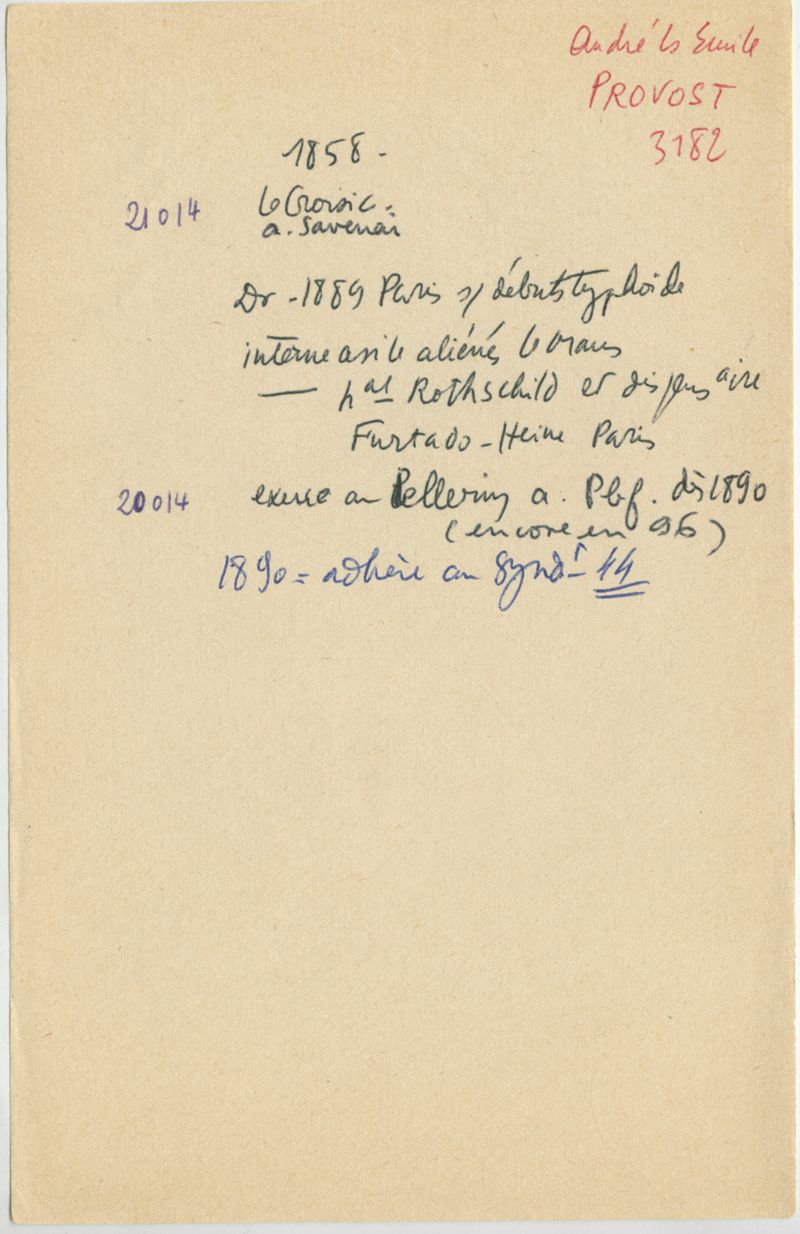 André Ls Emile
PROVOST
3182
1858 -
21014 Le Croisic -
a. Savenai
Dr - 1889 Paris s/ débuts typhoïde
interne asile aliénés le Mans
— hal Rothschild et dispensaire
Furtado-Heine Paris
20014 exerce au Pellerin a. Pbf. dès 1890
(encore en 96)
1890 = adhère au Syndt 44